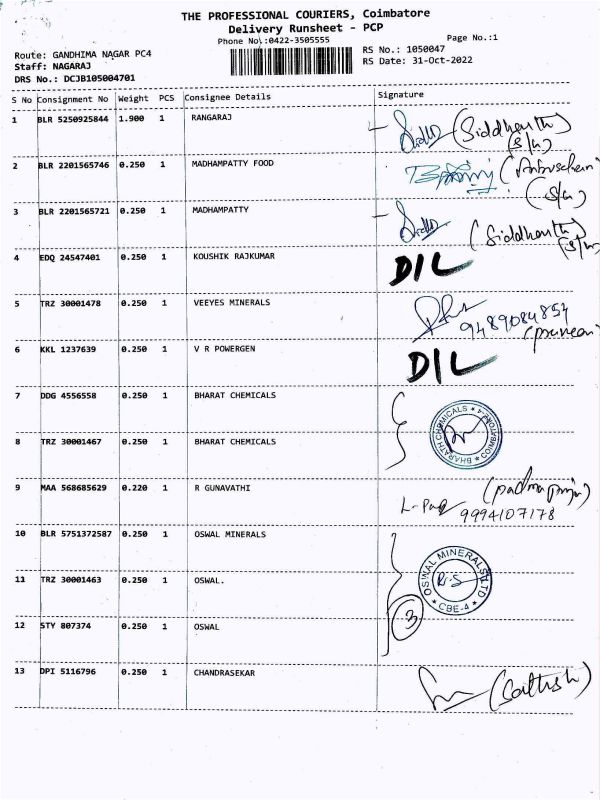 THE PROFESSIONAL COURIERS, Coimbatore
Delivery Runsheet - PCP
Phone No.:0422-3505555
Page No.:1
Route: GANDHIMA NAGAR PC4
RS No.: 1050047
Staff: NAGARAJ
RS Date: 31-Oct-2022
DRS No.: DCJB105004701
S No Consignment No Weight PCS Consignee Details Signature
1 BLR 5250925844 1.900 1 RANGARAJ (Siddhanth)
(S/W)
2 BLR 2201565746 0.250 1 MADHAMPATTY FOOD
(S/W)
3 BLR 2201565721 0.250 1 MADHAMPATTY (Siddhanth)
(S/W)
4 EDQ 24547401 0.250 1 KOUSHIK RAJKUMAR D/L
5 TRZ 30001478 0.250 1 VEEYES MINERALS 9489084854
(praveen)
6 KKL 1237639 0.250 1 V R POWERGEN D/L
7 DDG 4556558 0.250 1 BHARAT CHEMICALS
BHARATH CHEMICALS * COIMBATORE-4 *
8 TRZ 30001467 0.250 1 BHARAT CHEMICALS
9 MAA 568685629 0.220 1 R GUNAVATHI
9994107178
10 BLR 5751372587 0.250 1 OSWAL MINERALS
OSWAL MINERALS LTD * CBE-4 *
11 TRZ 30001463 0.250 1 OSWAL.
12 STY 807374 0.250 1 OSWAL 3
13 DPI 5116796 0.250 1 CHANDRASEKAR (Sathish)